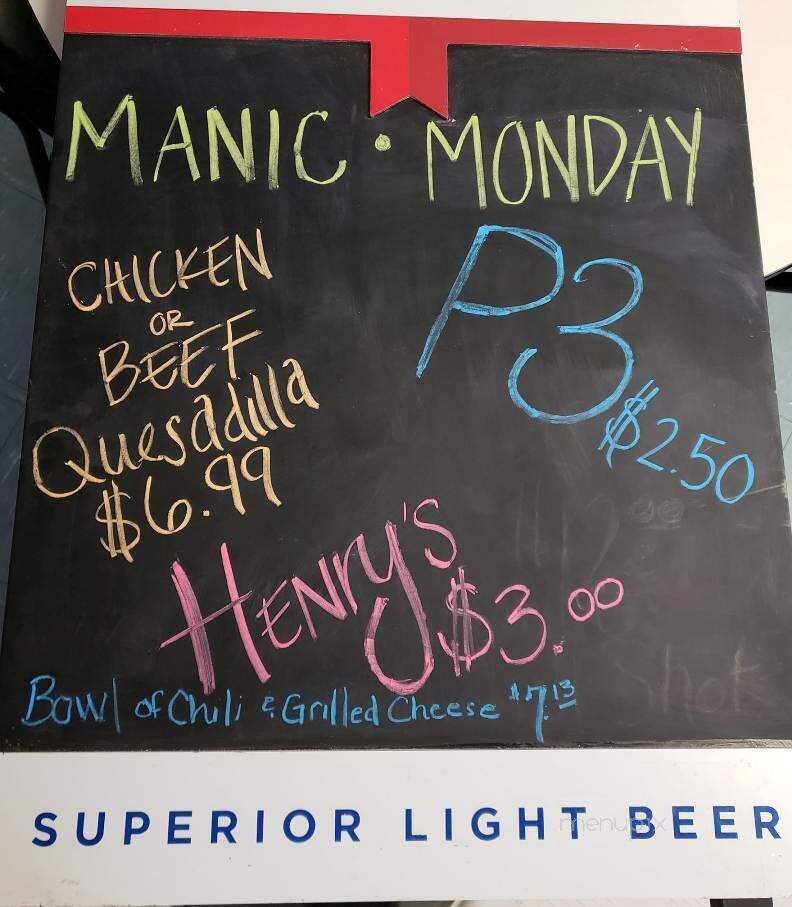 MANIC • MONDAY
CHICKEN
OR
BEEF
Quesadilla
$6.99
P3
$2.50
HENry's
$3.00
Bowl of Chili & Grilled Cheese $7.13
Shot
SUPERIOR LIGHT BEER
menupix